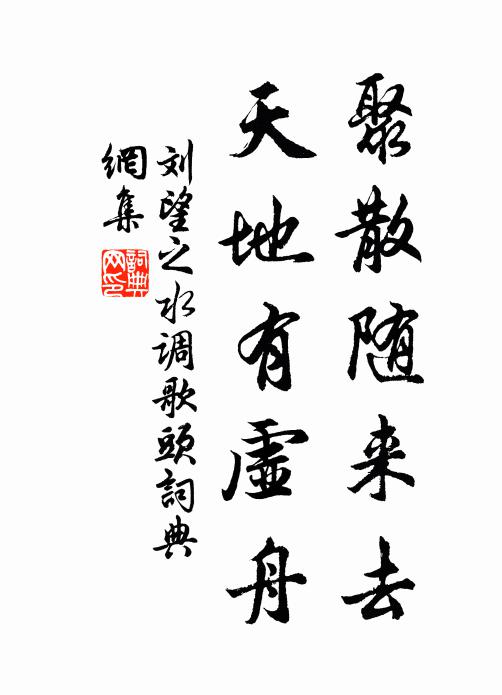 聚散随来去
天地有虚舟
刘望之水调歌頭詞典
網集
詞典
网印